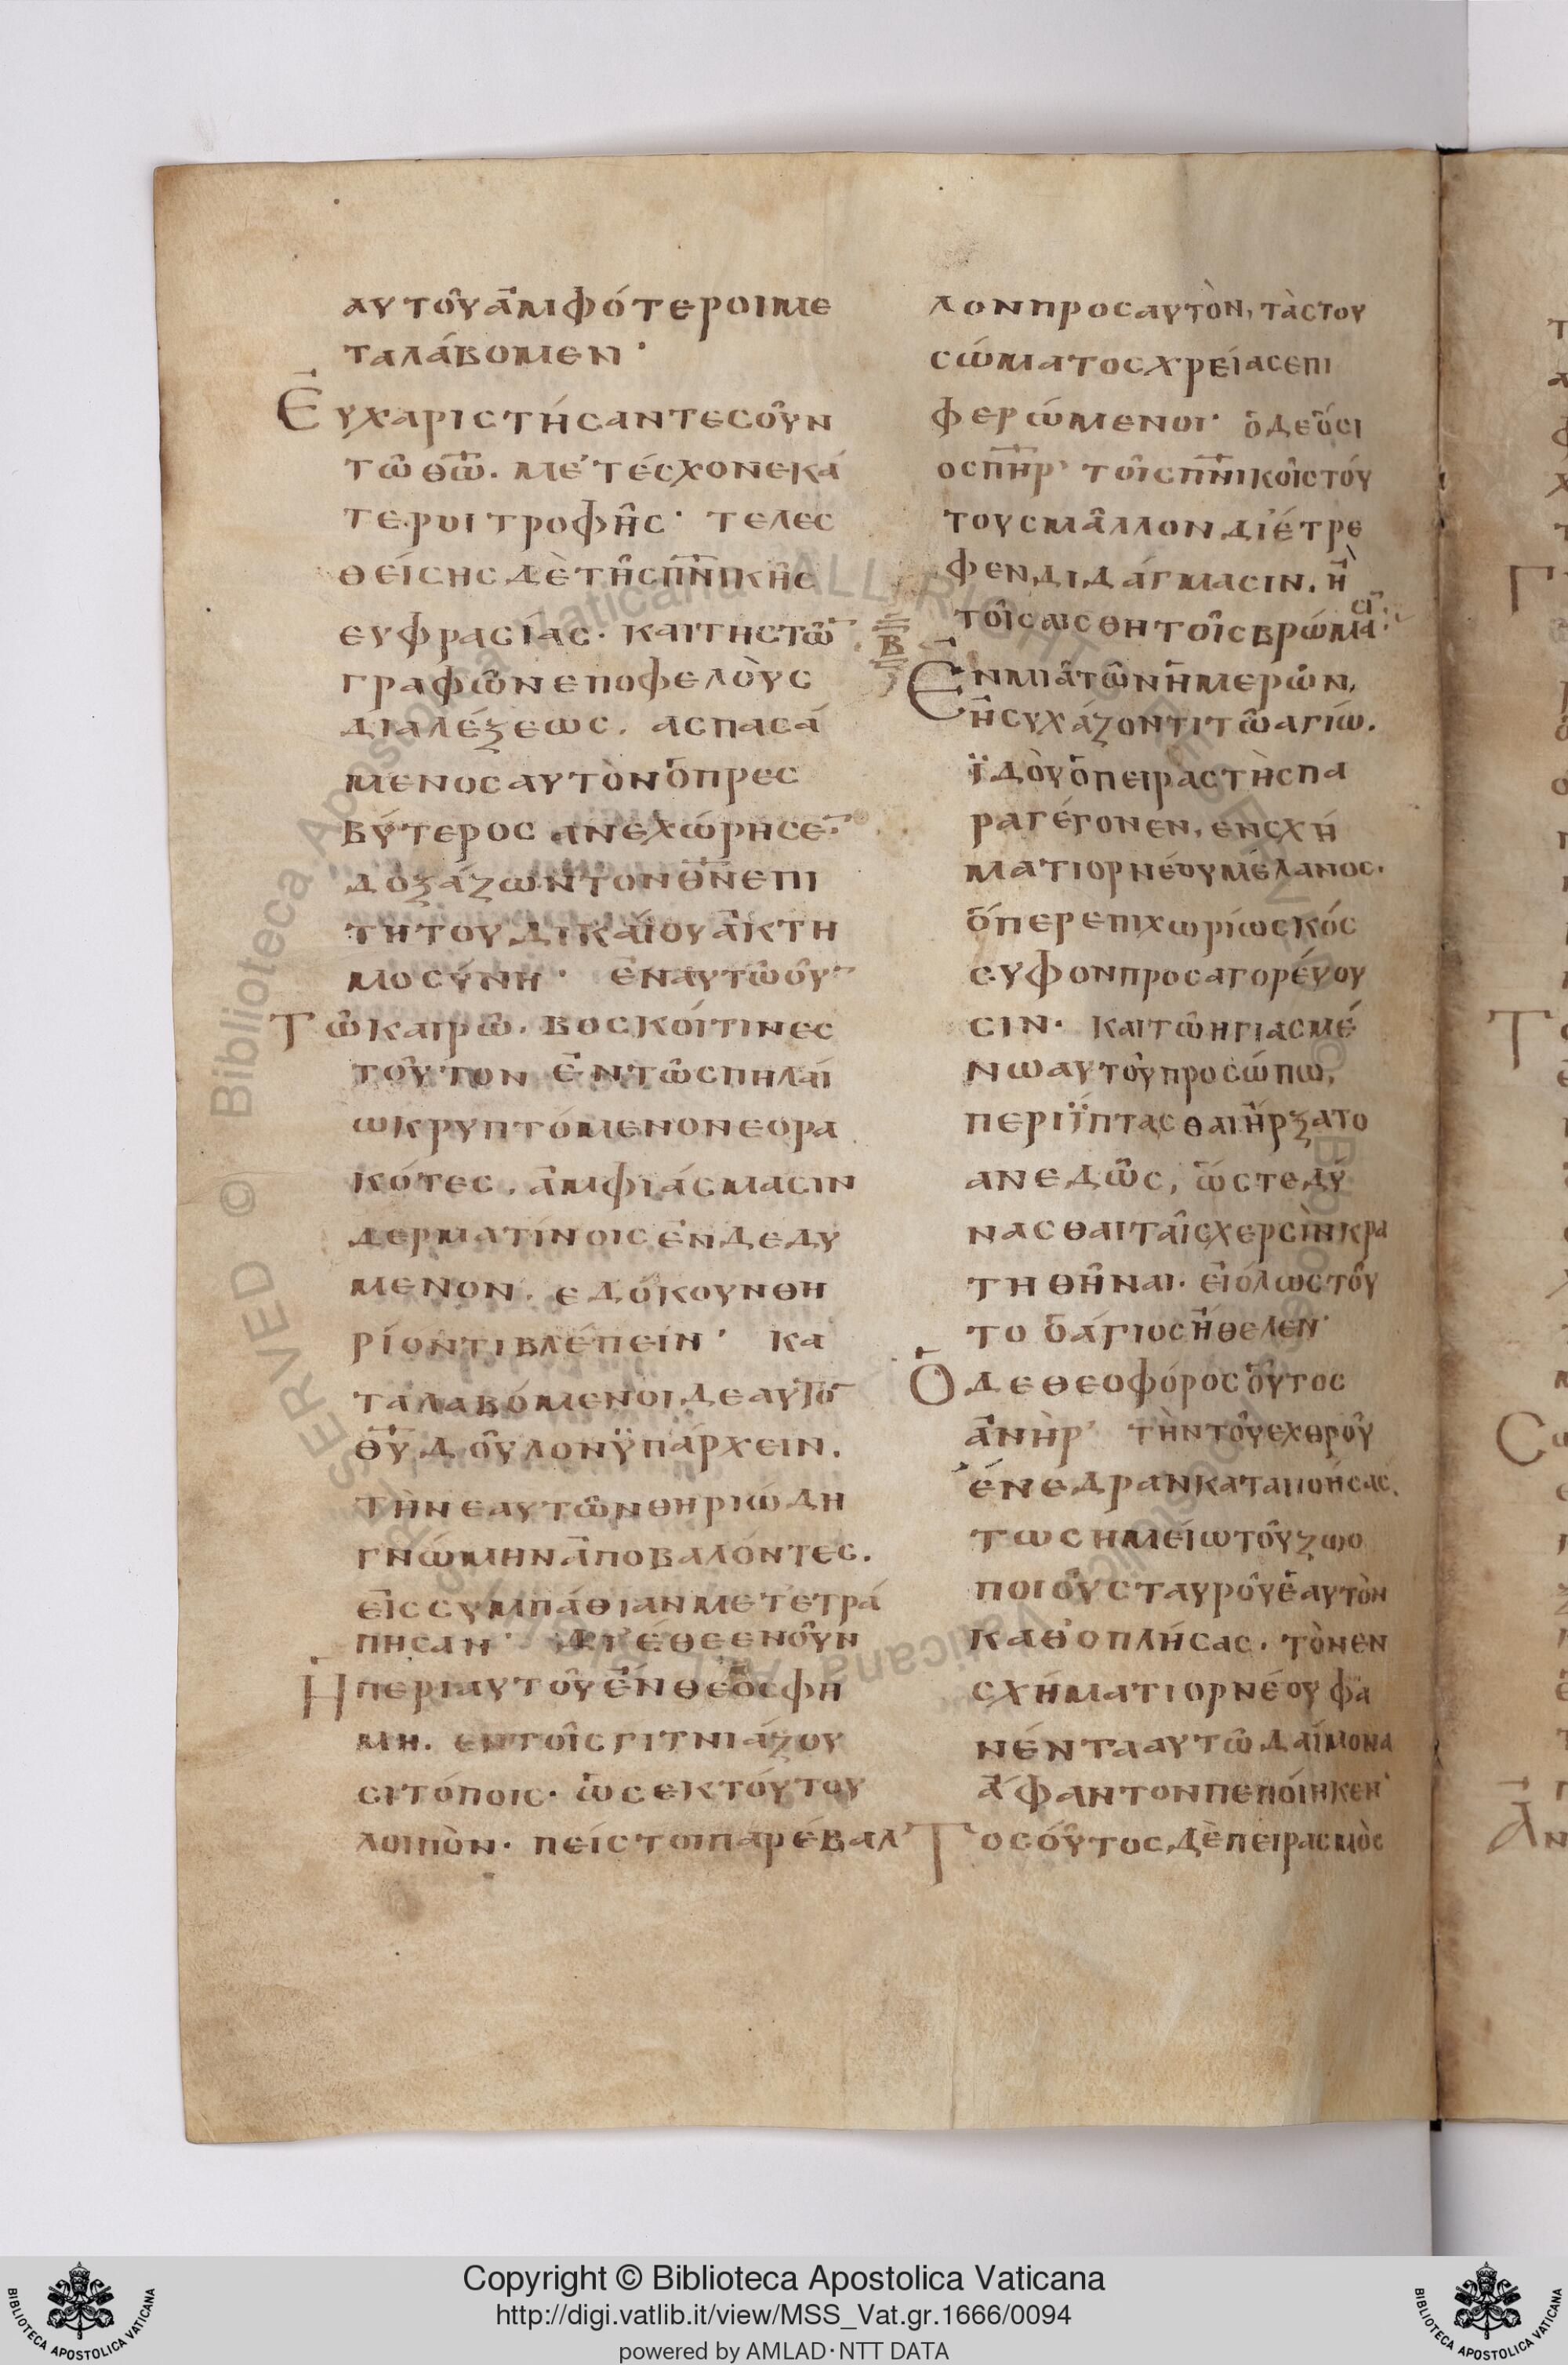 αυτοῦἀμφότεροιμε
ταλάβομεν·
Ἐυχαριστήσαντεσοὖν
τῶ θ̅ω̅. μετέσχονεκά
τεροι τροφῆς· τελες
θείσησ δὲ τῆσπ̅ν̅ικῆς
ευφρασίας· καιτηστῶ̅
γραφῶνεποφελοὺς
διαλέξεως. ασπασά
μενοσαυτὸνὁπρες
βύτερος ανεχώρησε·̅
δοξάζωντονθ̅ν̅επι
τητουδικαίουἀκτη
μοσύνη· ἐναυτῶοὖ̅
Τῶκαιρῶ. βοσκοίτινες
τοῦτον ἐντῶσπηλαί
ωκρυπτόμενονεορα
κότες. ἀμφιάσμασιν
δερματίνοισἐνδεδυ
μενον. εδόκουνθη
ρίοντιβλέπειν· κα
ταλαβόμενοιδεαυτὸ̅
θ̅υ̅ δοῦλονϋπάρχειν.
τὴνεαυτῶνθηριώδη
γνώμηνἀποβαλόντες.
εἰσσύμπάθιανμετετρά
πησαν· διέθεενοὖν
Ἡπεριαυτοῦἔνθεοσφη
μη. εντοῖσγιτνιάζου
σιτόποις· ὡσεκτούτου
λοιπὸν· πείστοιπαρέβαλ
λονπροσαυτὸν, τὰστου
σώματοσχρείασεπι
φερώμενοι· ὁδεὅσι
οσπ̅η̅ρ̅· τοῖσπ̅ν̅ικοῖστού
τουσμᾶλλονδιέτρε
φενδιδάγμασιν, ἢ
τοῖσαισθητοῖσβρώμασι̅·
Β
Ἐνμιᾶτῶνἡμερῶν,
ἡσυχάζοντιτῶαγίω.
ϊδοὺὁπειραστὴσπα
ραγέγονεν, ενσχή
ματιορνέουμέλανος·
ὅπερεπιχωρίωσκός
συφονπροσαγορέυου
σιν· καιτῶηγιασμέ
νωαυτοῦπροσώπω,
περιϊπτασθαιἤρξατο
ανεδῶς, ὥστεδύ
νασθαιταῖσχερσὶνκρα
τηθῆναι. εἰόλωστοῦ
το ὁάγιοσἤθελεν·
Ὁδεθεοφόροσοὗτος
ἀνὴρ· τὴντοῦεχθροῦ
ἐνεδρανκαταποήσας.
τωσημείωτοῦζωο
ποιοῦσταυροῦἑαυτὸν
καθοπλήσας. τὸνεν
σχήματιορνέουφα
νέντααυτῶδαίμονα
ἄφαντονπεποίηκεν·
Τοσοῦτοσδὲπειρασμὸς
Copyright © Biblioteca Apostolica Vaticana
http://digi.vatlib.it/view/MSS_Vat.gr.1666/0094
powered by AMLAD·NTT DATA